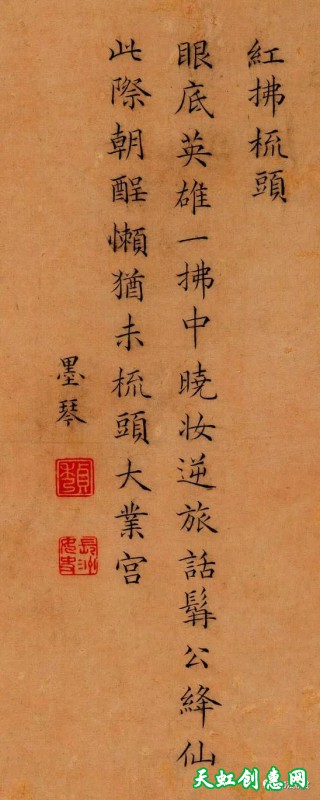 紅拂梳頭
眼底英雄一拂中曉妝逆旅話髯公絳仙
此際朝酲懶猶未梳頭大業宮
墨琴
長洲女史
天虹创意网